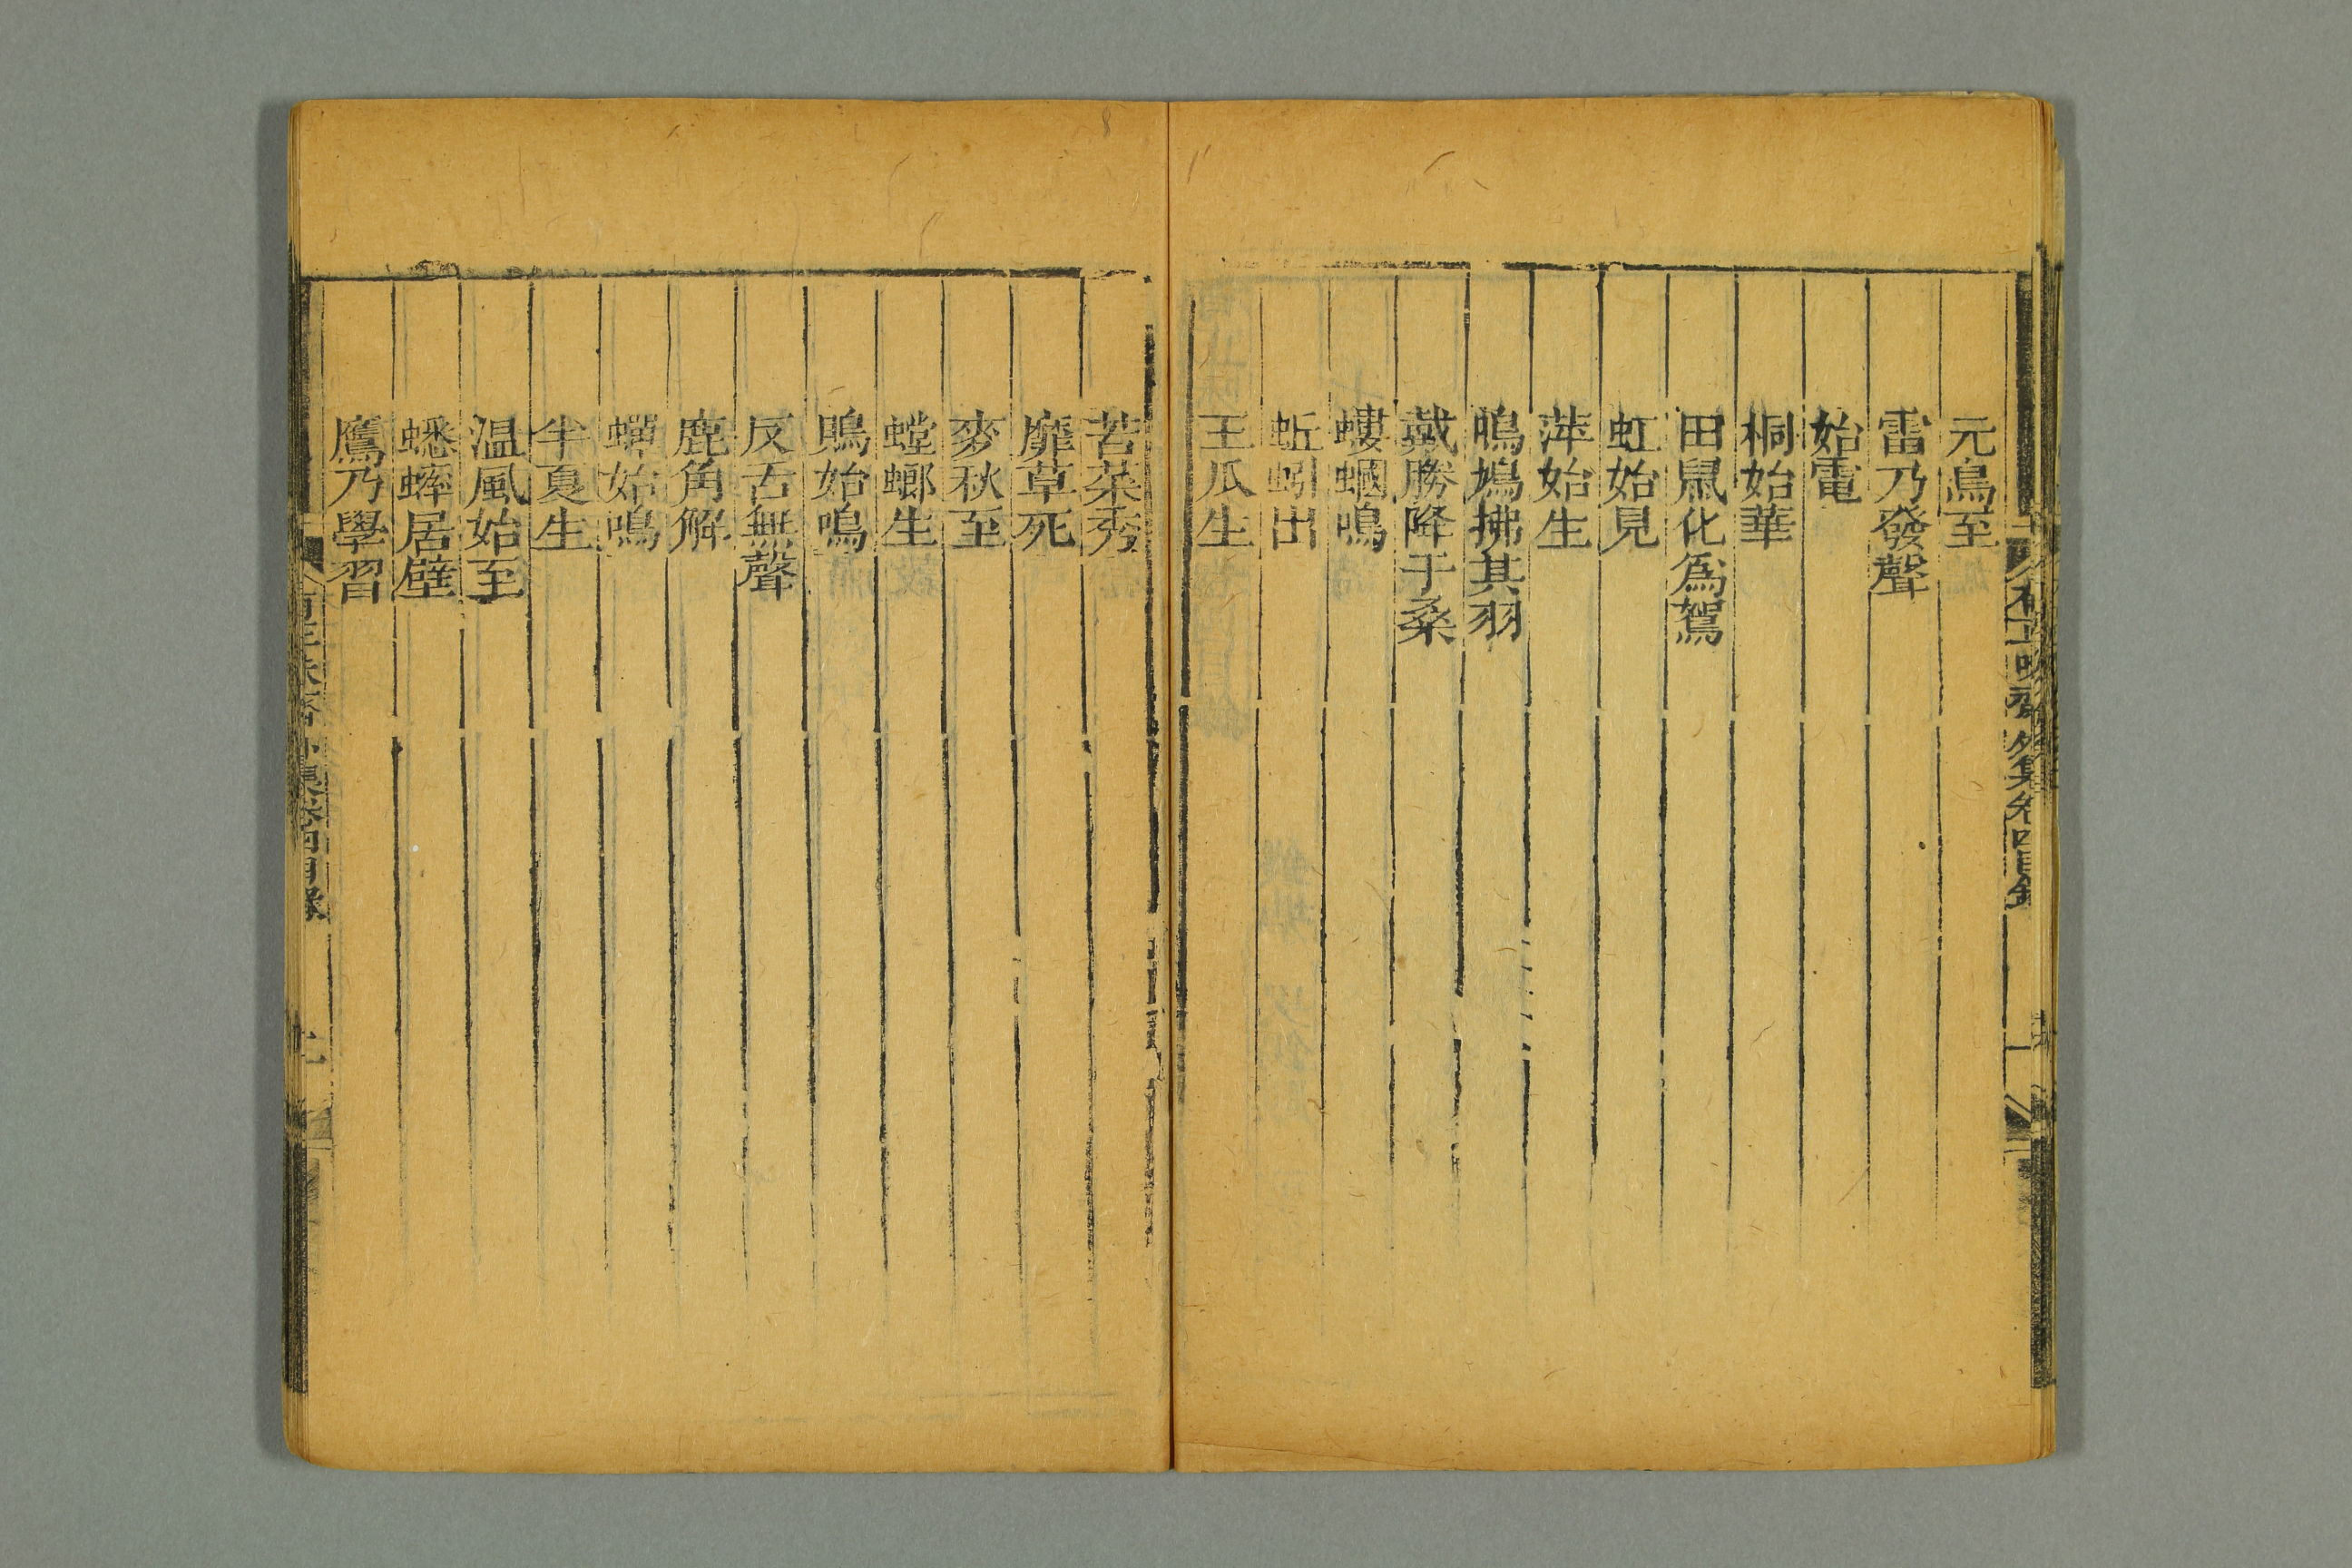 元鳥至
雷乃發聲
始電
桐始華
田鼠化為鴽
虹始見
萍始生
鳴鳩拂其羽
戴勝降于桑
螻蟈鳴
蚯蚓出
王瓜生
苦菜秀
靡草死
麥秋至
螳螂生
鵙始鳴
反舌無聲
鹿角解
蟬始鳴
半夏生
温風始至
蟋蟀居壁
鷹乃學習